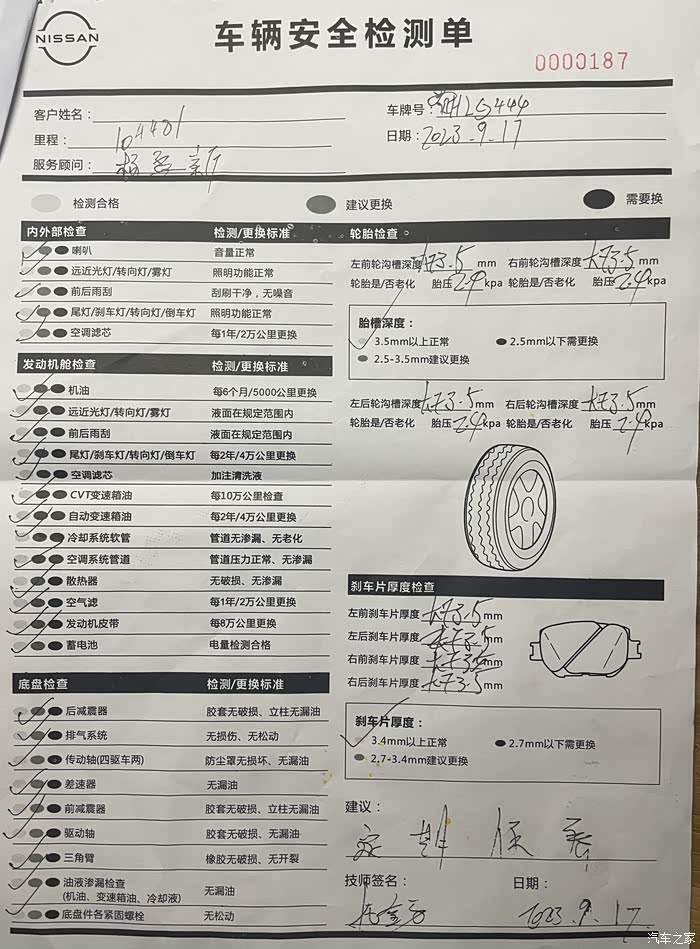 NISSAN
车辆安全检测单
0000187
客户姓名：
车牌号：
里程：104481
日期：2023.9.17
服务顾问：
检测合格 建议更换 需要换
内外部检查 检测/更换标准
喇叭 音量正常
远近光灯/转向灯/雾灯 照明功能正常
前后雨刮 刮刷干净，无噪音
尾灯/刹车灯/转向灯/倒车灯 照明功能正常
空调滤芯 每1年/2万公里更换
发动机舱检查 检测/更换标准
机油 每6个月/5000公里更换
远近光灯/转向灯/雾灯 液面在规定范围内
前后雨刮 液面在规定范围内
尾灯/刹车灯/转向灯/倒车灯 每2年/4万公里更换
空调滤芯 加注清洗液
CVT变速箱油 每10万公里检查
自动变速箱油 每2年/4万公里更换
冷却系统软管 管道无渗漏、无老化
空调系统管道 管道压力正常、无渗漏
散热器 无破损、无渗漏
空气滤 每1年/2万公里更换
发动机皮带 每8万公里更换
蓄电池 电量检测合格
底盘检查 检测/更换标准
后减震器 胶套无破损、立柱无漏油
排气系统 无损伤、无松动
传动轴(四驱车两) 防尘罩无损坏、无漏油
差速器 无漏油
前减震器 胶套无破损、立柱无漏油
驱动轴 胶套无破损、无漏油
三角臂 橡胶无破损、无开裂
油液渗漏检查
(机油、变速箱油、冷却液) 无漏油
底盘件各紧固螺栓 无松动
轮胎检查
左前轮沟槽深度 大于3.5 mm 右前轮沟槽深度 大于3.5 mm
轮胎是/否老化 胎压 2.4 kpa 轮胎是/否老化 胎压 2.4 kpa
胎槽深度：
3.5mm以上正常 2.5mm以下需更换
2.5-3.5mm建议更换
左后轮沟槽深度 大于3.5 mm 右后轮沟槽深度 大于3.5 mm
轮胎是/否老化 胎压 2.4 kpa 轮胎是/否老化 胎压 2.4 kpa
刹车片厚度检查
左前刹车片厚度 大于3.5 mm
左后刹车片厚度 大于3.5 mm
右前刹车片厚度 大于3.5 mm
右后刹车片厚度 大于3.5 mm
刹车片厚度：
3.4mm以上正常 2.7mm以下需更换
2.7-3.4mm建议更换
建议：
定期保养
技师签名： 日期：
2023.9.17
汽车之家